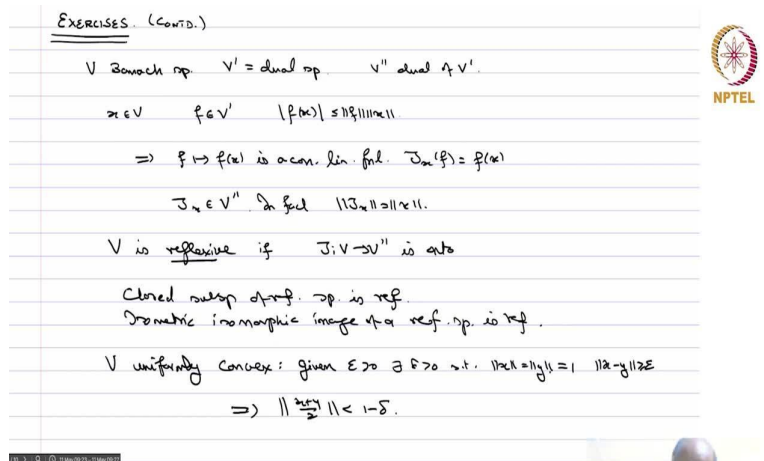 EXERCISES. (CONTD.)
V Banach sp. V' = dual sp. V'' dual of V'.
x ∈ V f ∈ V' |f(x)| ≤ ||f|| ||x||
⇒ f ↦ f(x) is a con. lin. fnl. J_x(f) = f(x)
J_x ∈ V''. In fact ||J_x|| = ||x||.
V is reflexive if J: V → V'' is onto
Closed subsp of ref. sp. is ref.
Isometric isomorphic image of a ref. sp. is ref.
V uniformly convex: given ε > 0 ∃ δ > 0 s.t. ||x|| = ||y|| = 1 ||x-y|| ≥ ε
⇒ ||(x+y)/2|| < 1-δ.
NPTEL